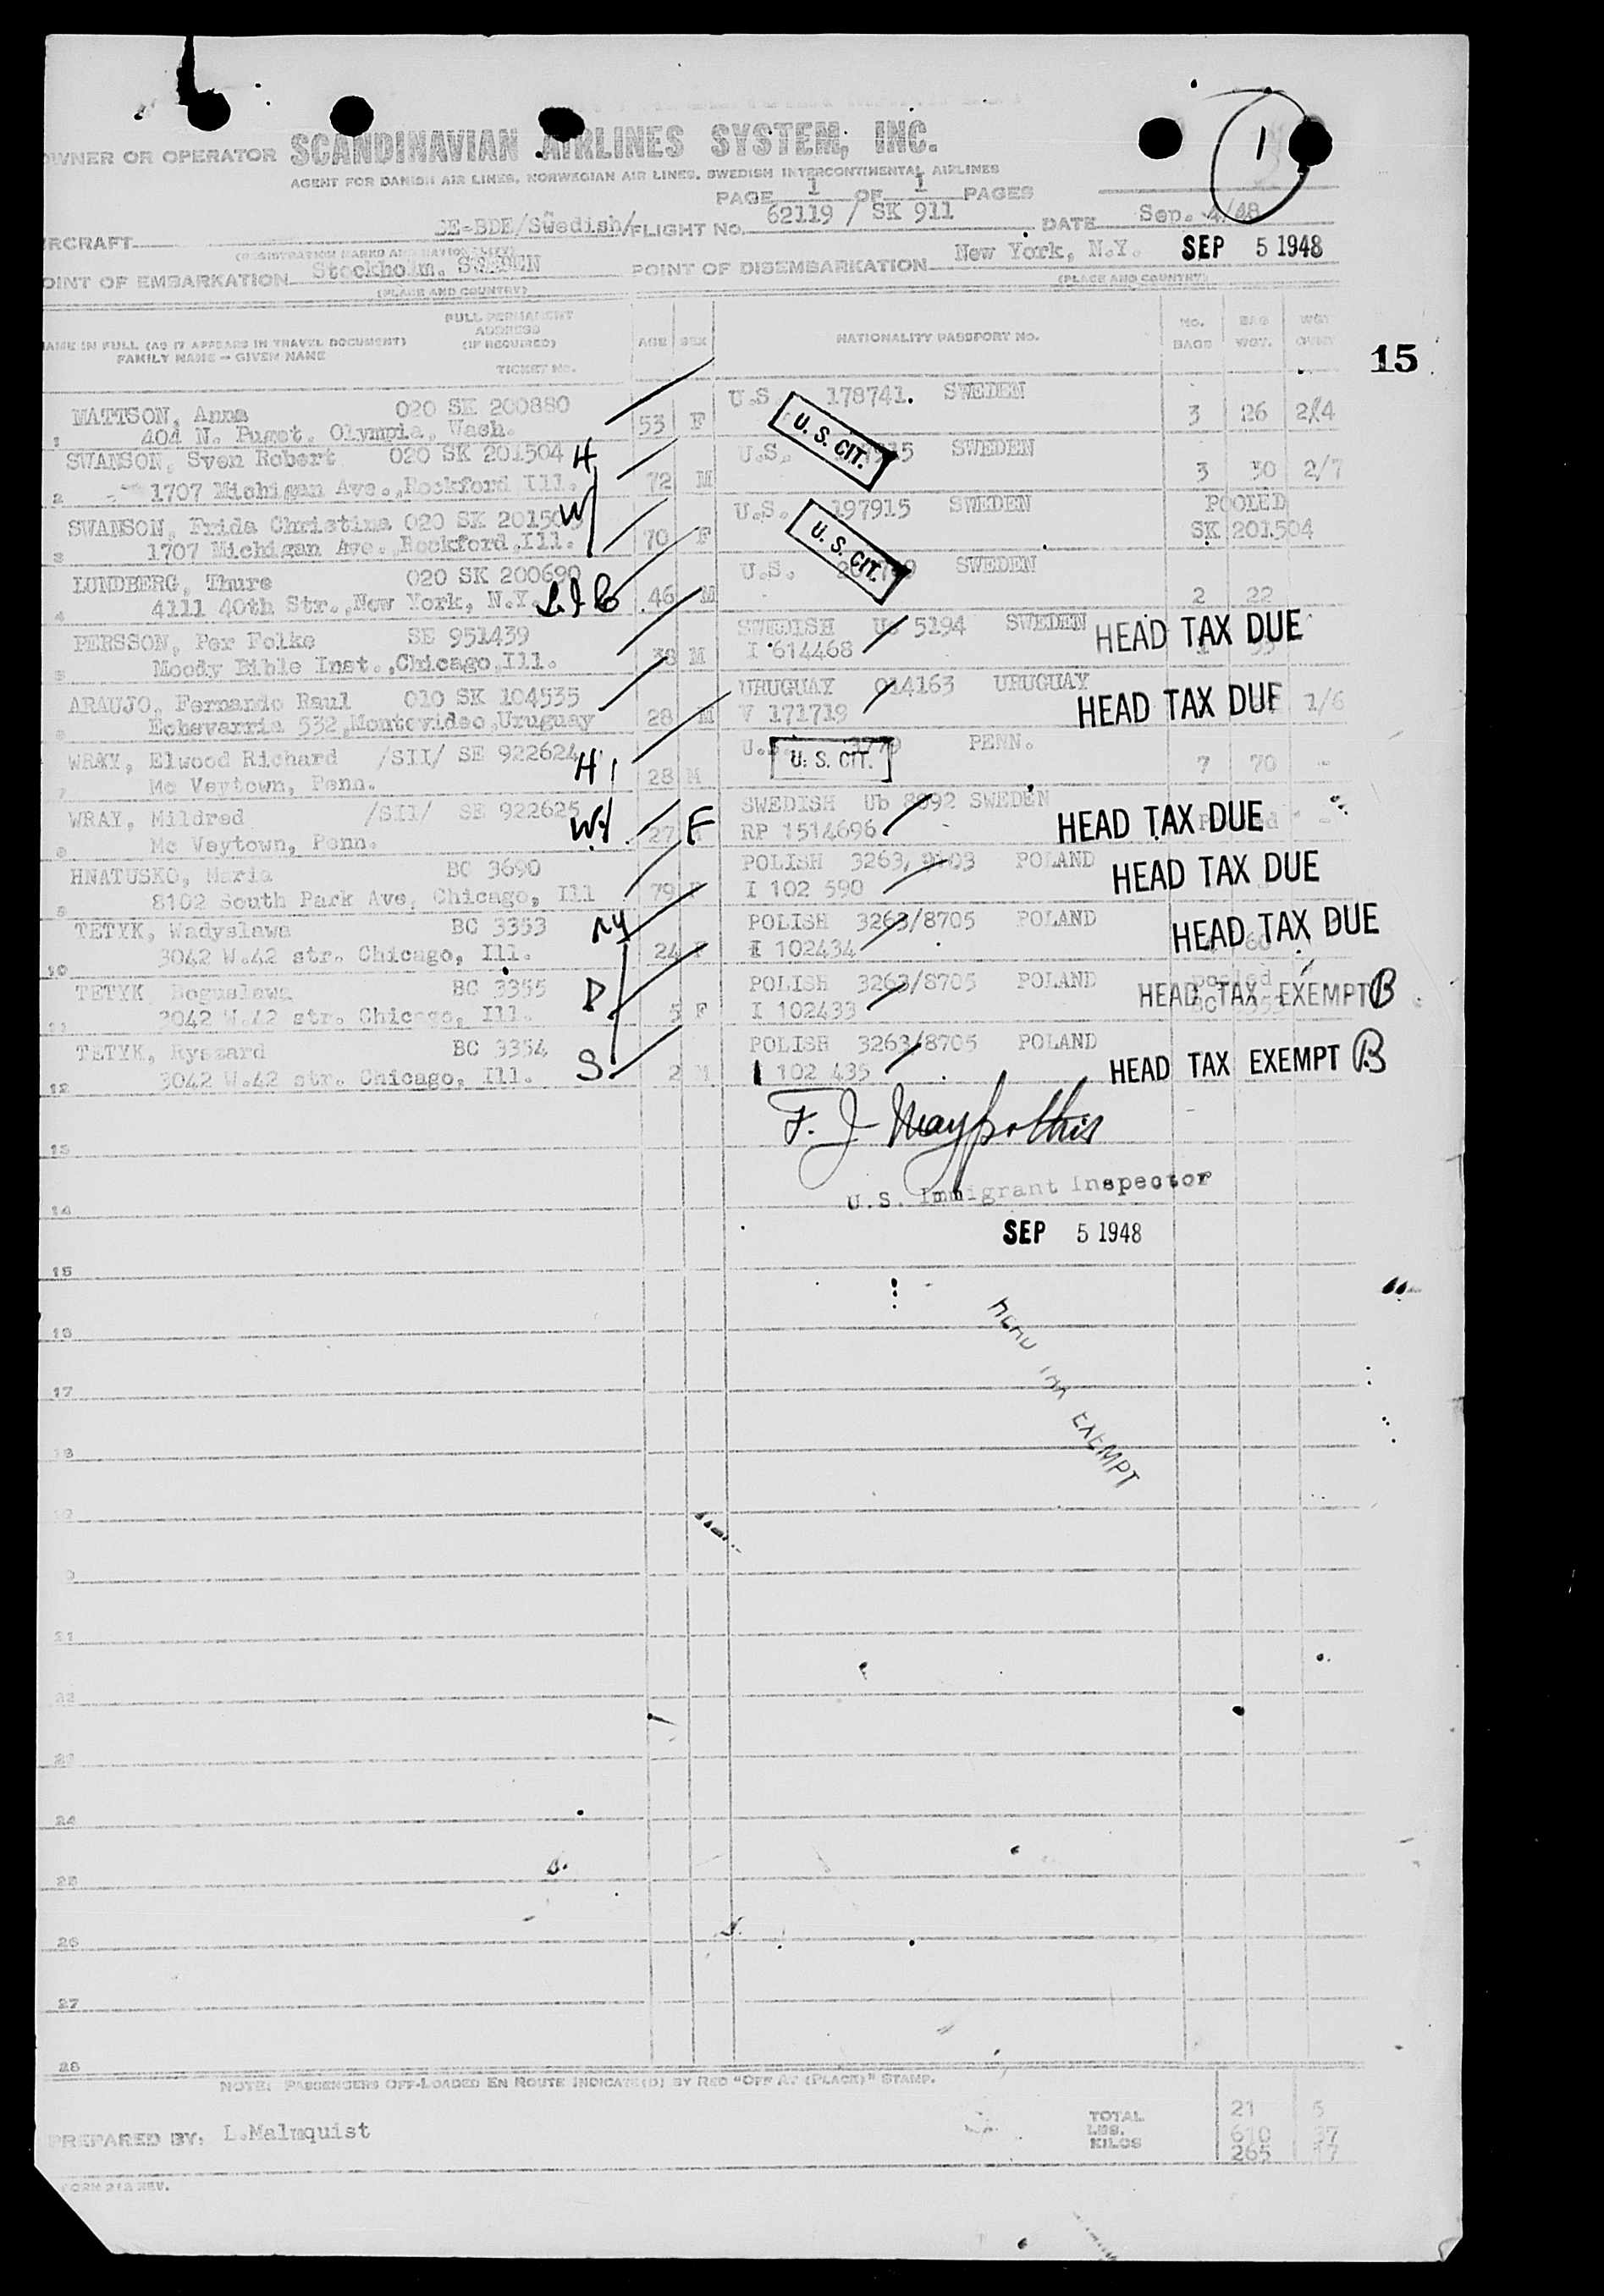 OWNER OR OPERATOR SCANDINAVIAN AIRLINES SYSTEM, INC.
AGENT FOR DANISH AIR LINES, NORWEGIAN AIR LINES, SWEDISH INTERCONTINENTAL AIRLINES
1
PAGE 1 OF 1 PAGES
RCRAFT SE-BDE/Swedish/ FLIGHT NO. 62119 / SK 911 DATE Sep. 4/48
(REGISTRATION MARKS AND NATIONALITY)
OINT OF EMBARKATION Stockholm. SWEDEN POINT OF DISEMBARKATION New York, N.Y. SEP 5 1948
(PLACE AND COUNTRY) (PLACE AND COUNTRY)
NAME IN FULL (AS IT APPEARS IN TRAVEL DOCUMENT) FAMILY NAME - GIVEN NAME
FULL PERMANENT ADDRESS (IF REQUIRED) TICKET NO.
AGE SEX NATIONALITY PASSPORT NO. NO. BAGS BAG WGT. WGT
15
MATTSON, Anna 020 SK 200880 U.S. 178741. SWEDEN
1 404 N. Puget. Olympia, Wash. 53 F U. S. CIT. 3 26 2/4
SWANSON, Sven Robert 020 SK 201504 H U.S. SWEDEN
2 1707 Michigan Ave., Rockford Ill. 72 M 3 30 2/7
SWANSON, Frida Christina 020 SK 201505 W U.S. 197915 SWEDEN POOLED
3 1707 Michigan Ave. Rockford, Ill. 70 F U. S. CIT. SK 201504
LUNDBERG, Thure 020 SK 200690 U.S. SWEDEN
4 4111 40th Str., New York, N.Y. 46 M 2 22
PERSSON, Per Folke SE 951439 SWEDISH Us 5194 SWEDEN HEAD TAX DUE
5 Moody Bible Inst., Chicago, Ill. 38 M I 614468
ARAUJO, Fernando Raul 010 SK 104535 URUGUAY 014163 URUGUAY HEAD TAX DUE
6 Echevarria 532, Montevideo, Uruguay 28 M V 171719 1/6
WRAY, Elwood Richard /SII/ SE 922624 H U.S. U. S. CIT. PENN.
7 Mc Veytown, Penn. 28 M 7 70 -
WRAY, Mildred /SII/ SE 922625 W SWEDISH Ub 8092 SWEDEN HEAD TAX DUE
8 Mc Veytown, Penn. 27 F RP 1514696
HNATUSKO, Maria BC 3690 POLISH 3263, POLAND HEAD TAX DUE
9 8102 South Park Ave, Chicago, Ill 79 F I 102 590
TETYK, Wadyslawa BC 3353 POLISH 3263/8705 POLAND HEAD TAX DUE
10 3042 W.42 str. Chicago, Ill. 24 F I 102434 60
TETYK Boguslawa BC 3355 D POLISH 3263/8705 POLAND pooled
11 3042 W.42 str. Chicago, Ill. 5 F I 102433 HEAD TAX EXEMPT B
TETYK, Ryszard BC 3354 S POLISH 3263/8705 POLAND
12 3042 W.42 str. Chicago, Ill. 2 M I 102 435 HEAD TAX EXEMPT B
13
U.S. Immigrant Inspector
14
SEP 5 1948
15
HEAD TAX EXEMPT
16
17
18
19
21
22
23
24
25
26
27
28
NOTE: PASSENGERS OFF-LOADED EN ROUTE INDICATE(D) BY RED "OFF AT (PLACE)" STAMP.
TOTAL 21 5
PREPARED BY: L.Malmquist LBS. 610 37
KILOS 265 17
FORM 212 REV.